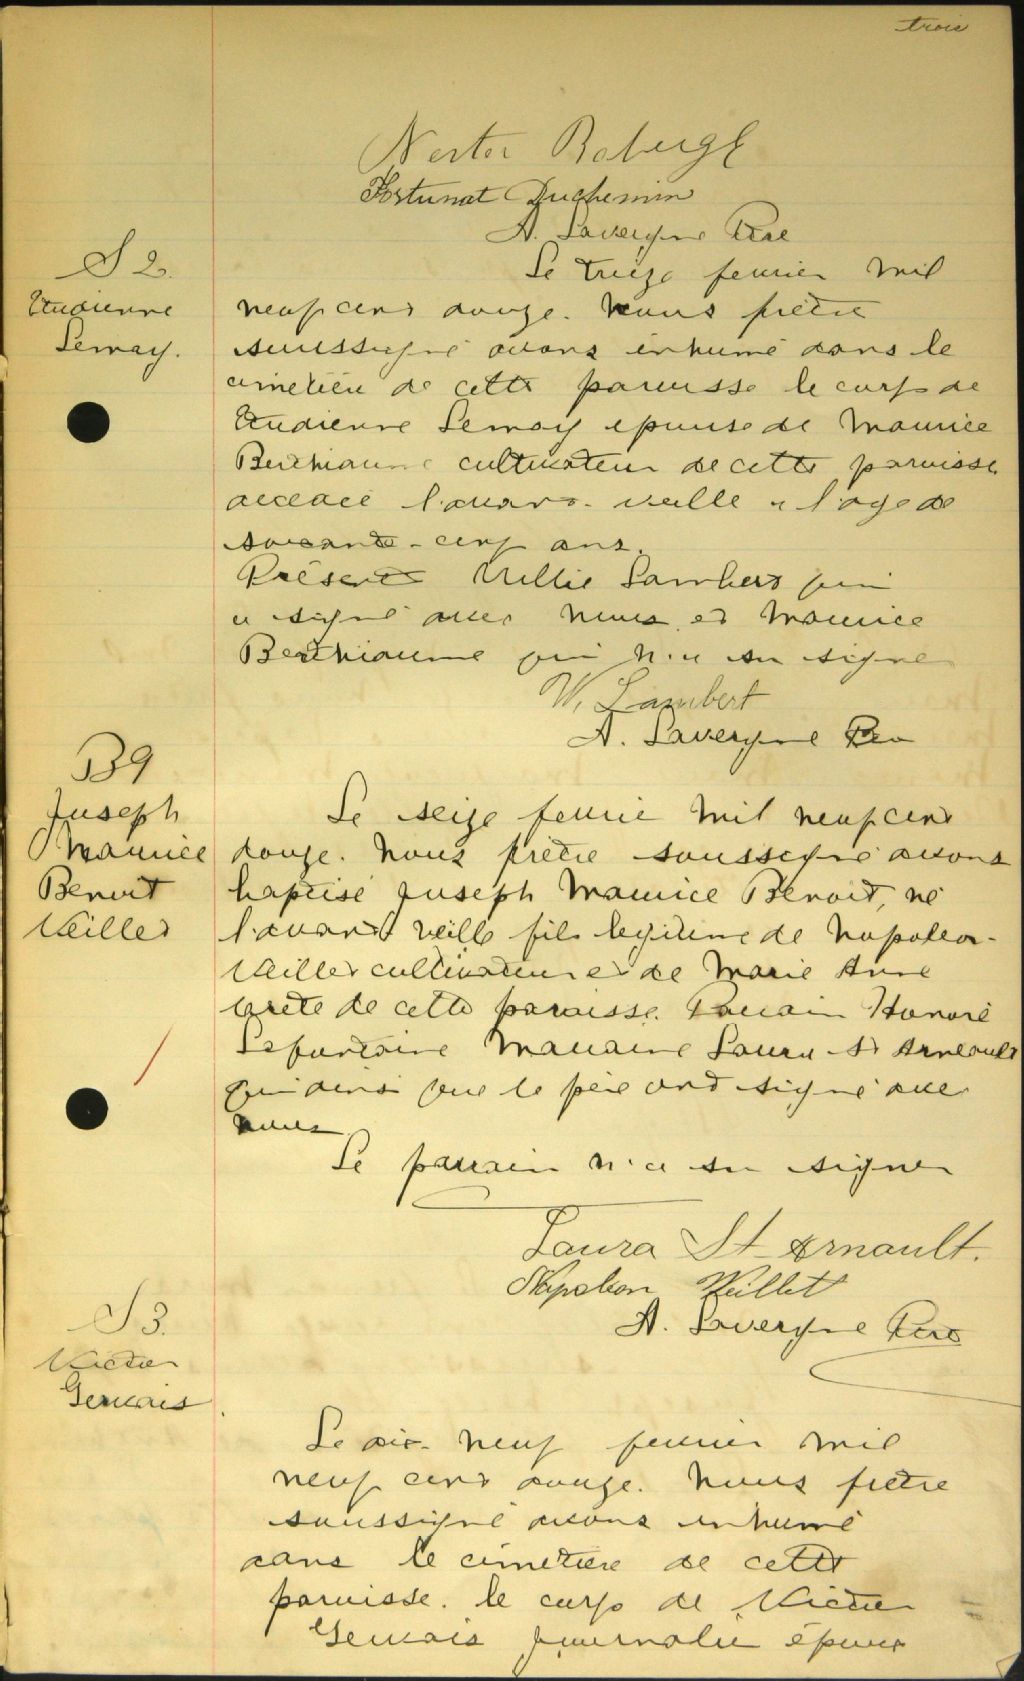 trois
Nestor Roberge
Fortunat Duchemin
A. Lavergne Ptre
S 2.
Etudienne
Lemay.
Le treize fevrier mil
neuf cent douze. Nous prêtre
soussigné avons inhumé dans le
cimetière de cette paroisse le corps de
Etudienne Lemay epouse de Maurice
Berthiaume cultivateur de cette paroisse
décédée l'avant-veille a l'age de
soixante-cinq ans.
Présents Willie Lambert qui
a signé avec nous et Maurice
Berthiaume qui n'a su signer
W. Lambert
A. Lavergne Ptre
B9
Joseph
Maurice
Benoit
Veillet
Le seize fevrier mil neuf cent
douze. Nous prêtre soussigné avons
baptisé Joseph Maurice Benoit, né
l'avant veille fils legitime de Napoleon
Veillet cultivateur et de Marie Anne
de cette paroisse. Parrain Honoré
Lafontaine Marraine Laura St Arneault
qui ainsi que le père ont signé avec
nous
Le parrain n'a su signer
Laura St-Arnault.
Napoléon Veillet
A. Lavergne Ptre
S 3.
Victor
Gervais
Le dix-neuf fevrier mil
neuf cent douze. Nous prêtre
soussigné avons inhumé
dans le cimetière de cette
paroisse. le corps de Victor
Gervais journalier époux